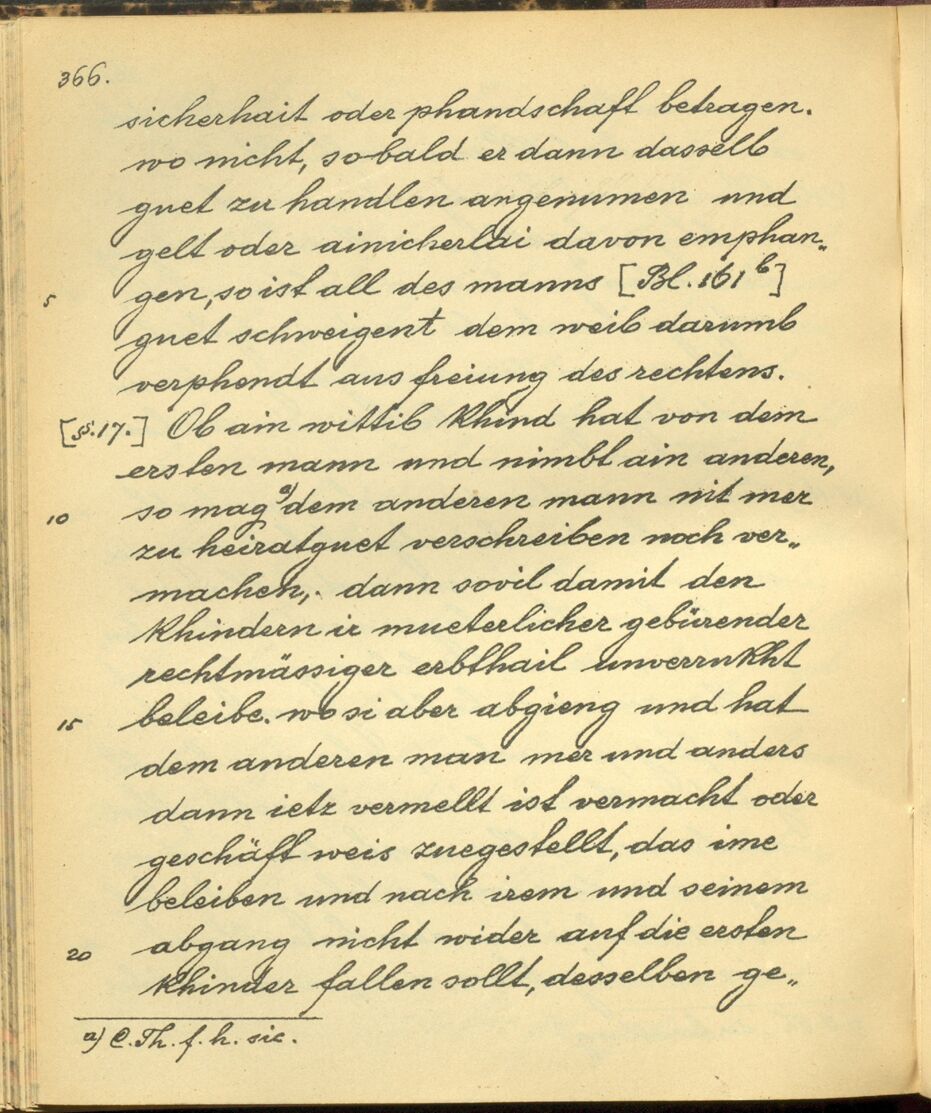 366.
sicherhait oder phandschaft betragen.
wo nicht, sobald er dann dasselb
guet zu handlen angenumen und
gelt oder ainicherlai davon emphan„
5 gen, so ist all des manns [Bl. 161 b]
guet schweigent dem weib darumb
verphendt aus freiung des rechtens.
[§. 17.] Ob ain wittib khind hat von dem
ersten mann und nimbt ain anderen,
10 so mag a) dem anderen mann nit mer
zu heiratguet verschreiben noch ver„
machen, dann sovil damit den
khindern ir mueterlicher gebürender
rechtmässiger erbthail unverrukht
15 beleibe. wo si aber abgieng und hat
dem anderen man mer und anders
dann ietz vermellt ist vermacht oder
geschäft weis zuegestellt, das ime
beleiben und nach irem und seinem
20 abgang nicht wider auf die ersten
khinder fallen sollt, desselben ge„
a) C. Th. f. h. sic.